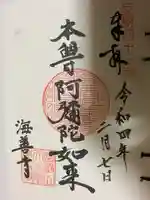 奉拝
令和四年
二月七日
本尊阿彌陀如来
海善寺